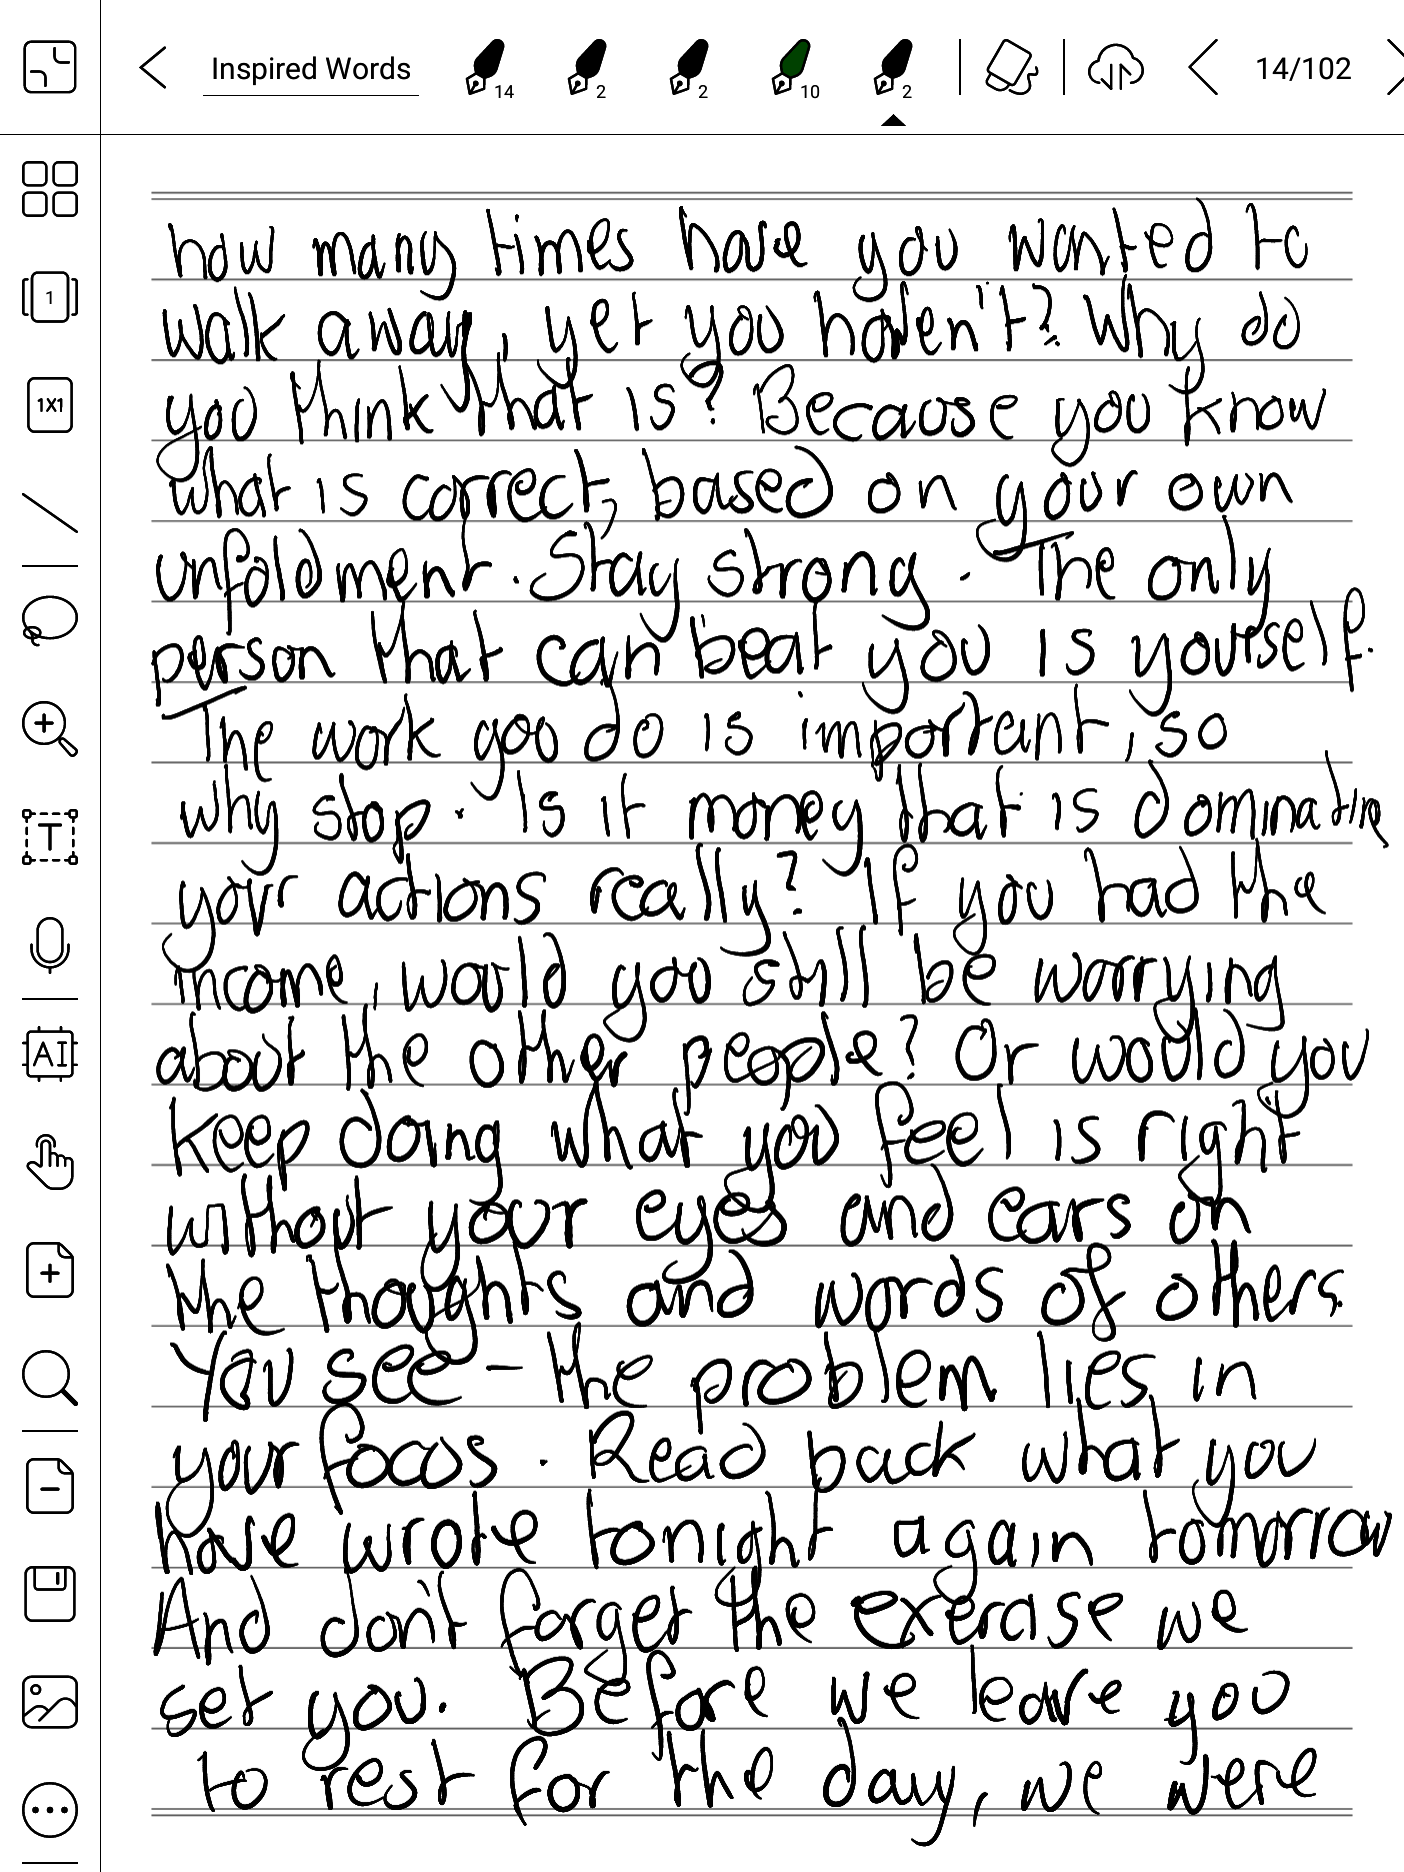 Inspired Words
14
2
2
10
2
14/102
1
1X1
T
AI
how many times have you wanted to
walk away, yet you haven't? Why do
you think that is? Because you know
what is correct, based on your own
unfoldment. Stay strong. The only
person that can beat you is yourself.
The work you do is important, so
why stop. Is it money that is dominating
your actions really? If you had the
income, would you still be worrying
about the other people? Or would you
keep doing what you feel is right
without your eyes and ears on
the thoughts and words of others.
You see - the problem lies in
your focus. Read back what you
have wrote tonight again tomorrow
And don't forget the exercise we
set you. Before we leave you
to rest for the day, we were